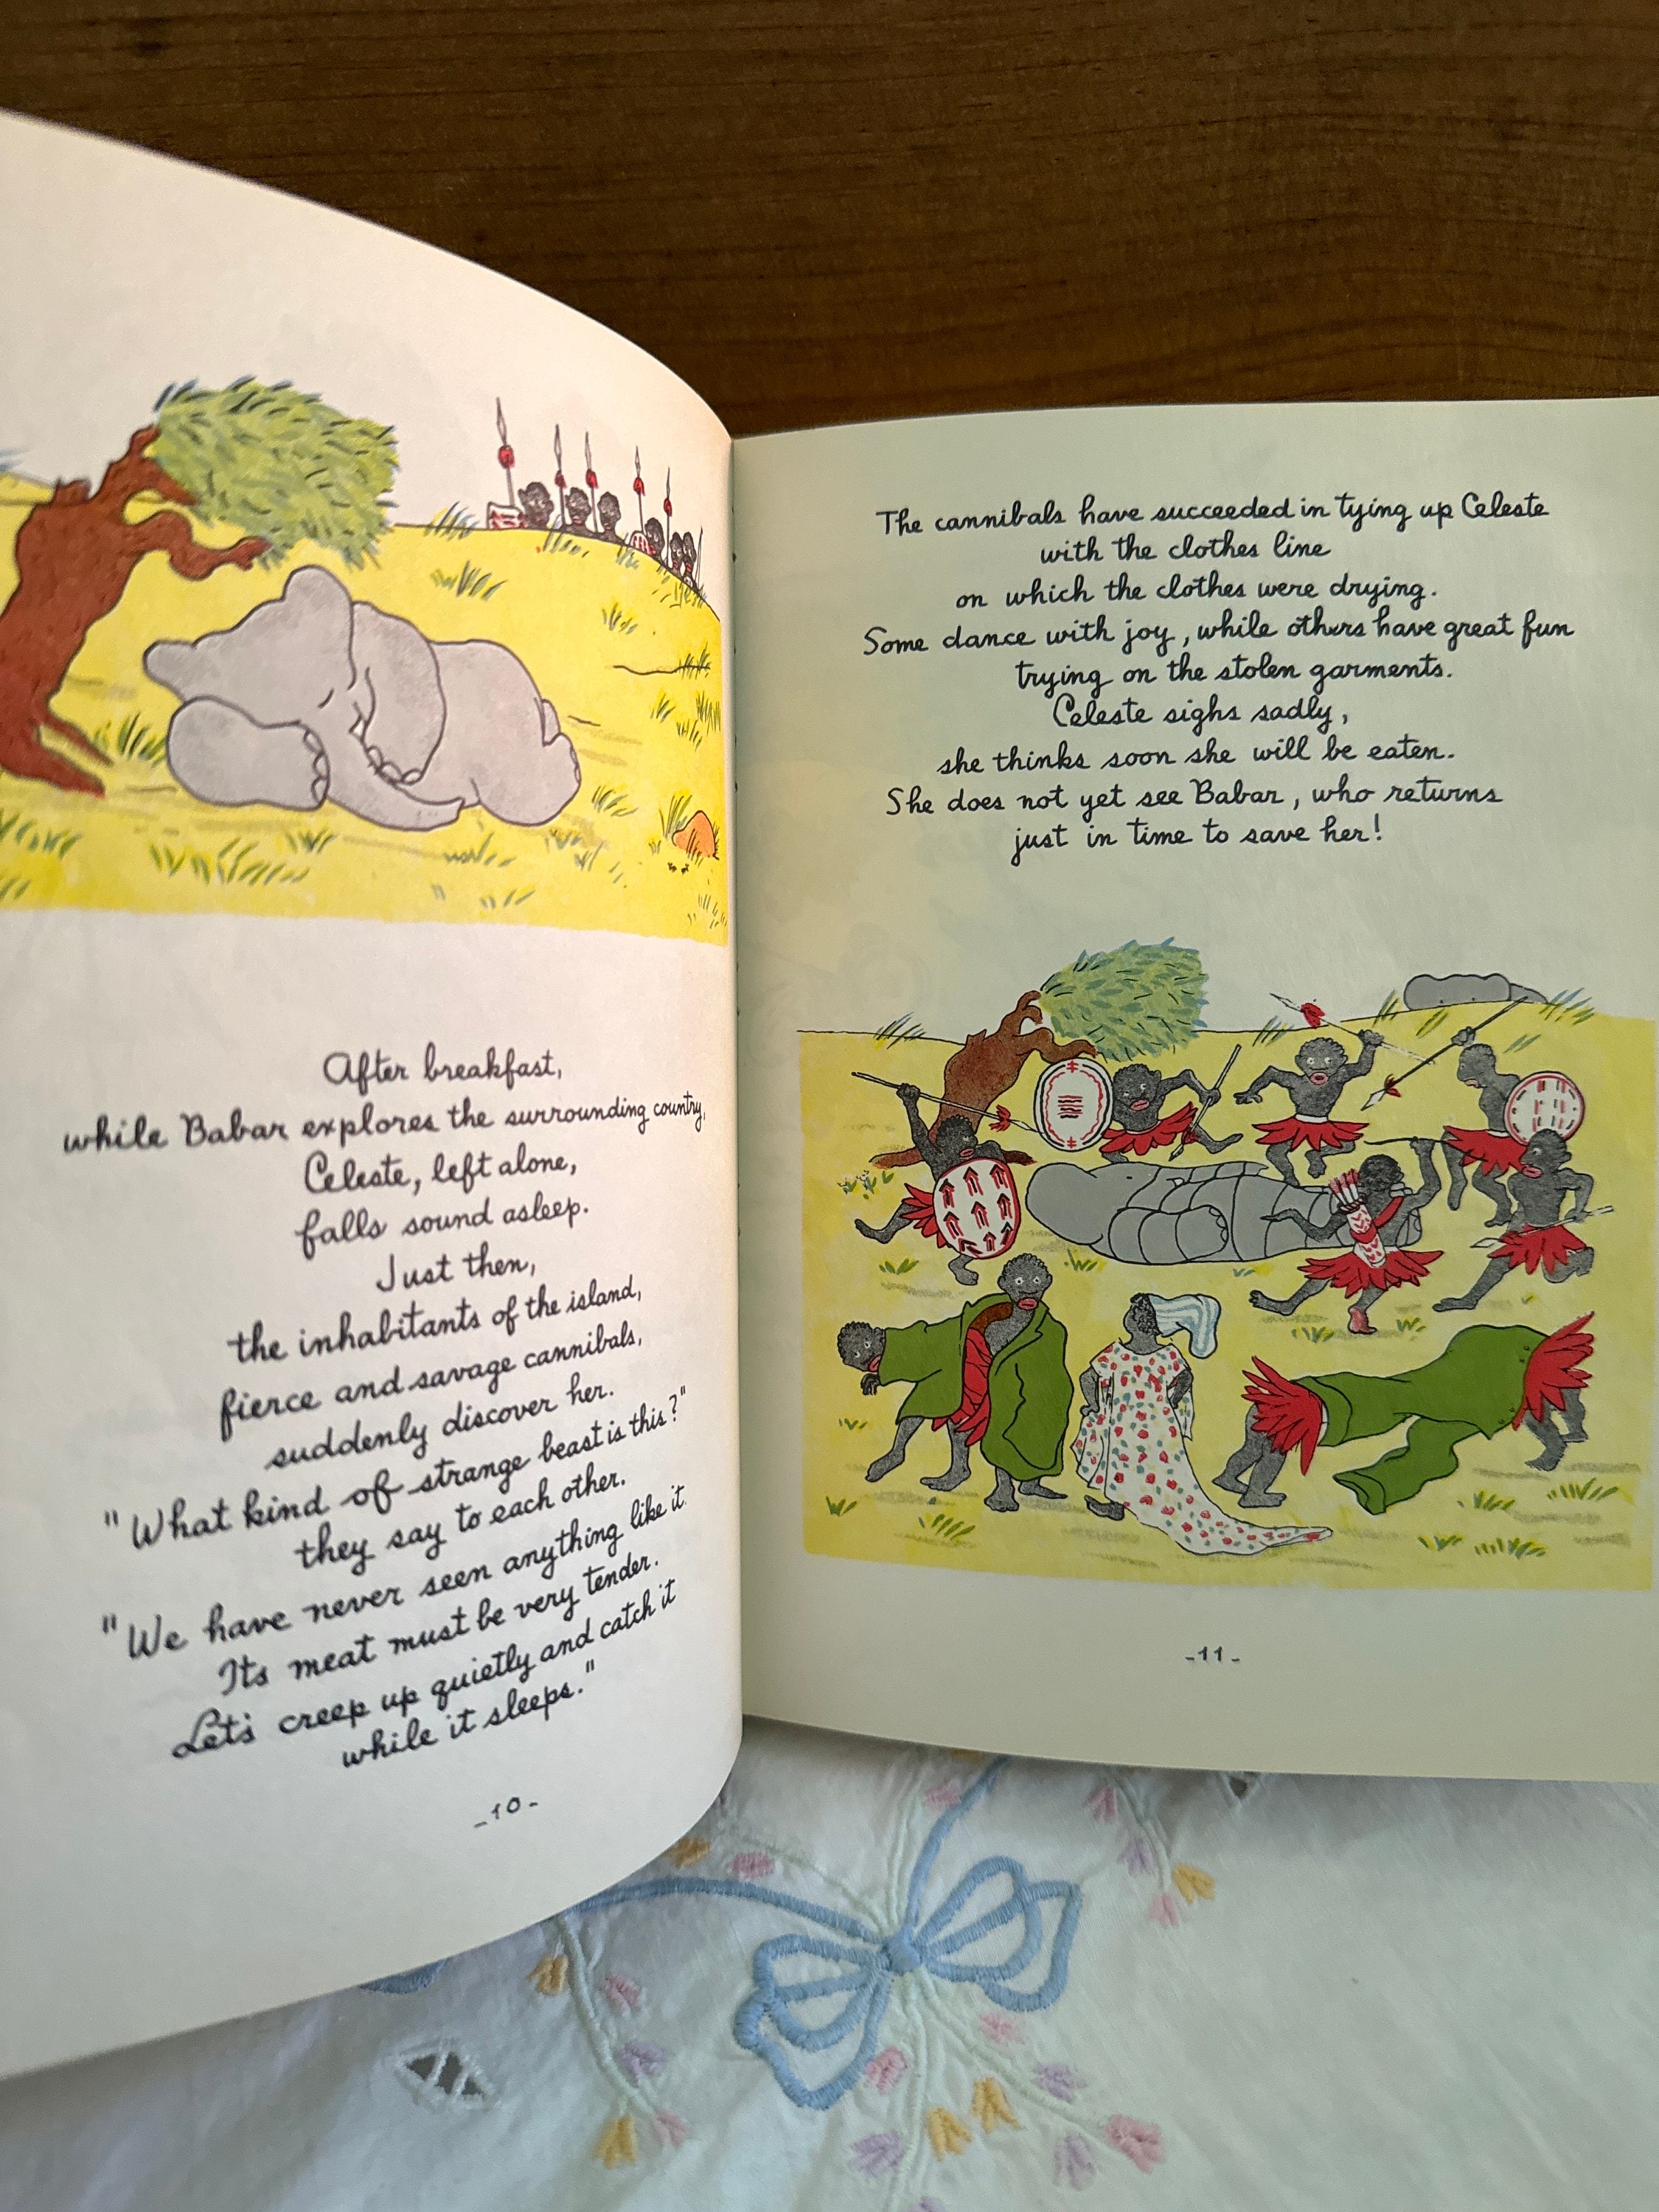 After breakfast,
while Babar explores the surrounding country,
Celeste, left alone,
falls sound asleep.
Just then,
the inhabitants of the island,
fierce and savage cannibals,
suddenly discover her.
"What kind of strange beast is this?"
they say to each other.
"We have never seen anything like it.
Its meat must be very tender.
Let's creep up quietly and catch it
while it sleeps."
-10-
The cannibals have succeeded in tying up Celeste
with the clothes line
on which the clothes were drying.
Some dance with joy, while others have great fun
trying on the stolen garments.
Celeste sighs sadly,
she thinks soon she will be eaten.
She does not yet see Babar, who returns
just in time to save her!
-11-